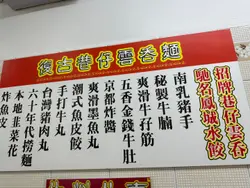 復古巷仔雲吞麵
招牌巷仔雲吞
馳名鳳城水餃
南乳豬手
秘製牛腩
爽滑牛孖筋
五香金錢牛肚
京都炸醬
爽滑墨魚丸
潮式魚皮餃
手打牛丸
台灣豬肉丸
六十年代撈麵
本地韮菜花
炸魚皮